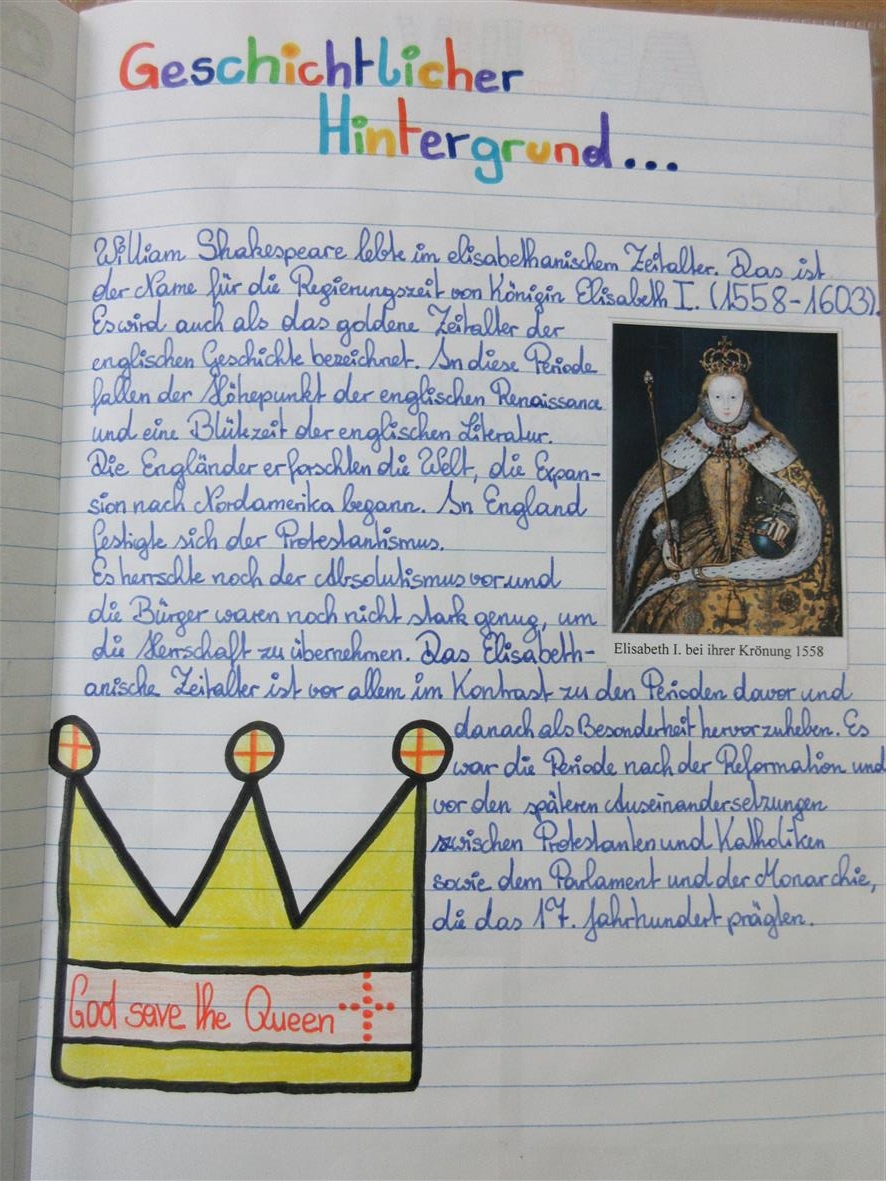 Geschichtlicher
Hintergrund...
William Shakespeare lebte im elisabethanischem Zeitalter. Das ist
der Name für die Regierungszeit von Königin Elisabeth I. (1558-1603).
Es wird auch als das goldene Zeitalter der
englischen Geschichte bezeichnet. In diese Periode
fallen der Höhepunkt der englischen Renaissance
und eine Blütezeit der englischen Literatur.
Die Engländer erforschten die Welt, die Expan-
sion nach Nordamerika begann. In England
festigte sich der Protestantismus.
Es herrschte noch der Absolutismus vor und
die Bürger waren noch nicht stark genug, um
die Herrschaft zu übernehmen. Das Elisabeth-
anische Zeitalter ist vor allem im Kontrast zu den Perioden davor und
danach als Besonderheit hervorzuheben. Es
war die Periode nach der Reformation und
vor den späteren Auseinandersetzungen
zwischen Protestanten und Katholiken
sowie dem Parlament und der Monarchie,
die das 17. Jahrhundert prägten.
Elisabeth I. bei ihrer Krönung 1558
God save the Queen